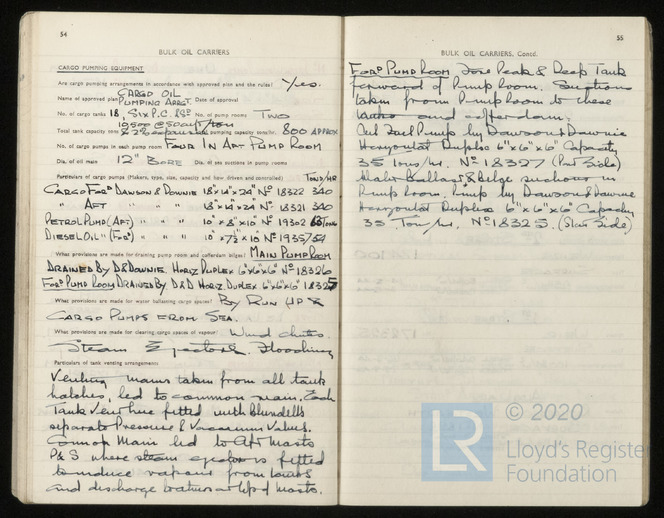 54
BULK OIL CARRIERS
CARGO PUMPING EQUIPMENT
Are cargo pumping arrangements in accordance with approved plan and the rules? Yes.
Name of approved plan CARGO OIL PUMPING ARRGT. Date of approval
No. of cargo tanks 18, SIX P.C. & S. No. of pump rooms TWO
10,500 @ 50 cuft/ton
Total tank capacity tons pumping capacity tons/hr. 800 APPROX
No. of cargo pumps in each pump room FOUR IN AFT PUMP ROOM
Dia. of oil main 12" BORE Dia. of sea suctions in pump rooms
Particulars of cargo pumps (Makers, type, size, capacity and how driven and controlled) TONS/HR
CARGO FORD DAWSON & DOWNIE 18"x14"x24" No 18322 340
" AFT 18"x14"x24" No 18321 340
PETROL PUMP (AFT) " " " 10"x8"x10" No 19302
DIESEL OIL " (FORD) " " " 10"x7½"x10" No 19351
What provisions are made for draining pump room and cofferdam bilges? MAIN PUMP ROOM
DRAINED BY D & DOWNIE HORIZ DUPLEX 6"x6"x6" No 18326
FORD PUMP ROOM DRAINED BY D & D HORIZ. DUPLEX 6"x6"x6" 18325
What provisions are made for water ballasting cargo spaces? BY RUN UP &
CARGO PUMPS FROM SEA.
What provisions are made for clearing cargo spaces of vapour? Wind chutes.
Steam Ejectors. Flooding
Particulars of tank venting arrangements
Venting mains taken from all tank
hatches, led to common main. Each
Tank Vent line fitted with Blundell's
separate Pressure & Vacuum Valves.
Common Main led to Aft Masts
P & S where steam ejector is fitted
to induce vapour from tanks
and discharge to atmos at top of masts.
55
BULK OIL CARRIERS. Contd.
FORD PUMP ROOM Fore Peak & Deep Tank
forward of Pump room. Suctions
taken from Pump room to these
tanks and cofferdam.
Oil Fuel Pump by Dawson & Downie
Horizontal Duplex 6"x6"x6" Capacity
35 tons/hr. No 18327 (Port Side)
Water Ballast & Bilge suctions in
Pump room. Pump by Dawson & Downie
Horizontal Duplex 6"x6"x6" Capacity
35 Ton/hr. No 18325. (Star Side)
LR © 2020
Lloyd's Register
Foundation